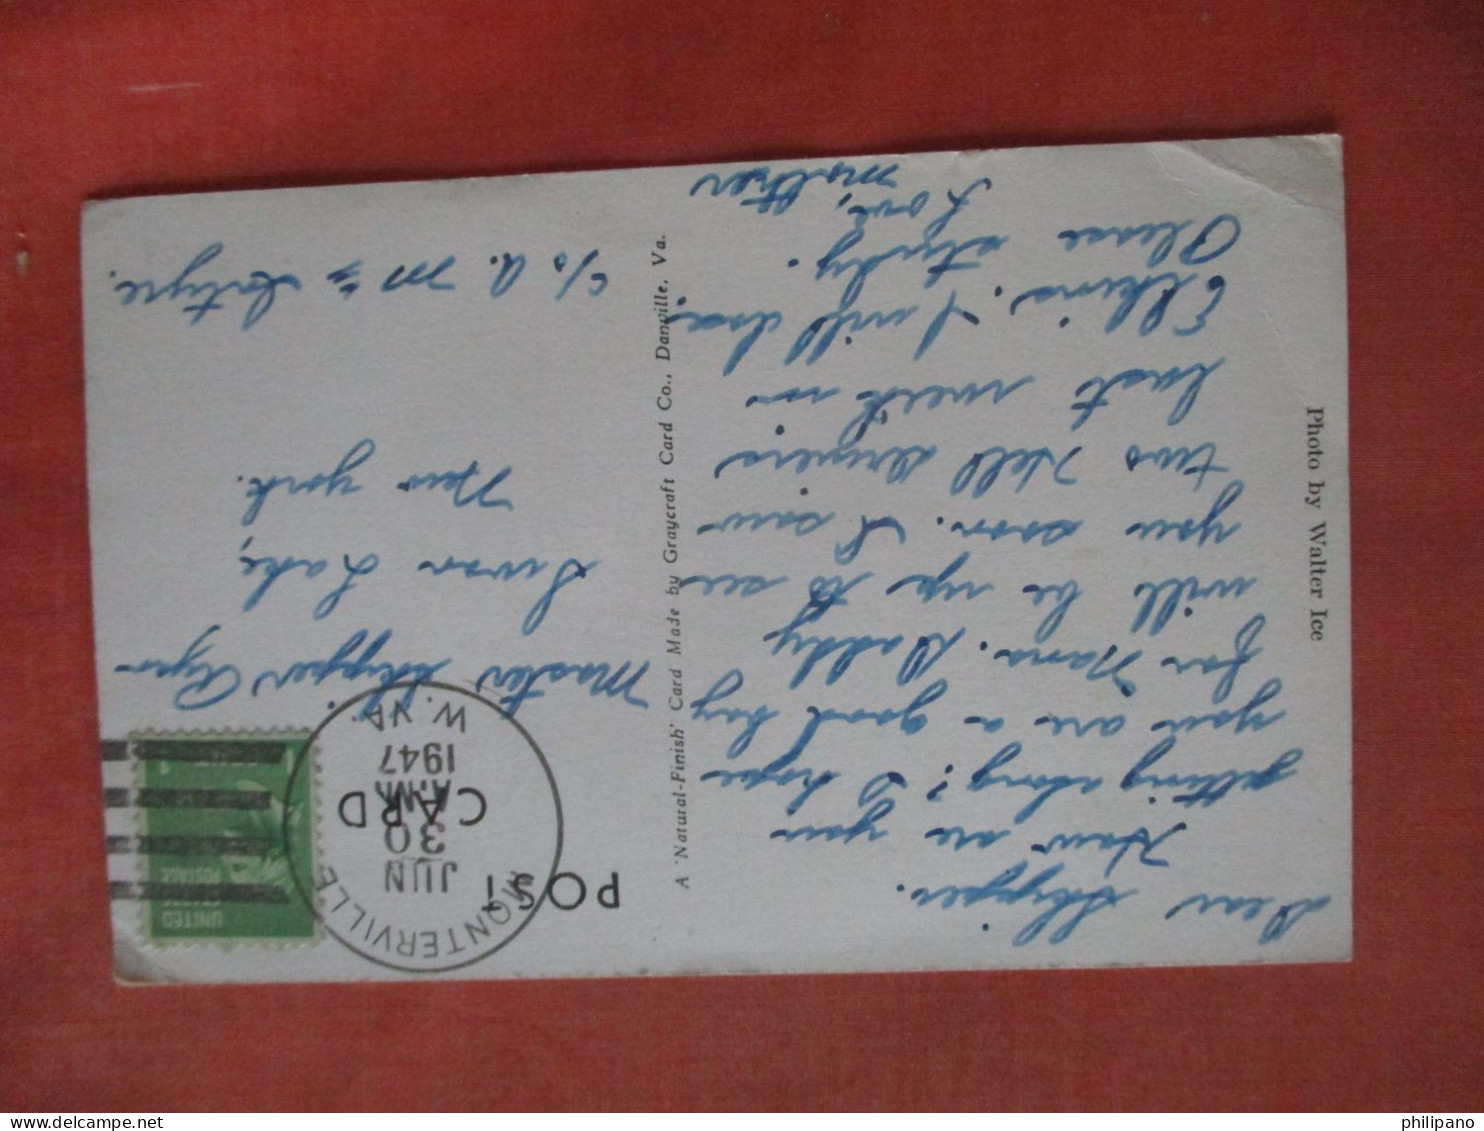 Dear Skipper.
How are you
getting along? I hope
you are a good boy
for Nana. Daddy
will be up to see
you soon. I saw
two Hell drivers
last week in
Elkins. I will draw
Please study.
Love,
mother
Photo by Walter Ice
A 'Natural-Finish' Card Made by Graycraft Card Co., Danville, Va.
POST
CARD
MONTERVILLE
JUN
30
A.M.
1947
W. VA.
UNITED
STATES
POSTAGE
1
Master Skipper
Swan Lake,
New York.
c/o A. Mc Intyre.
philipano